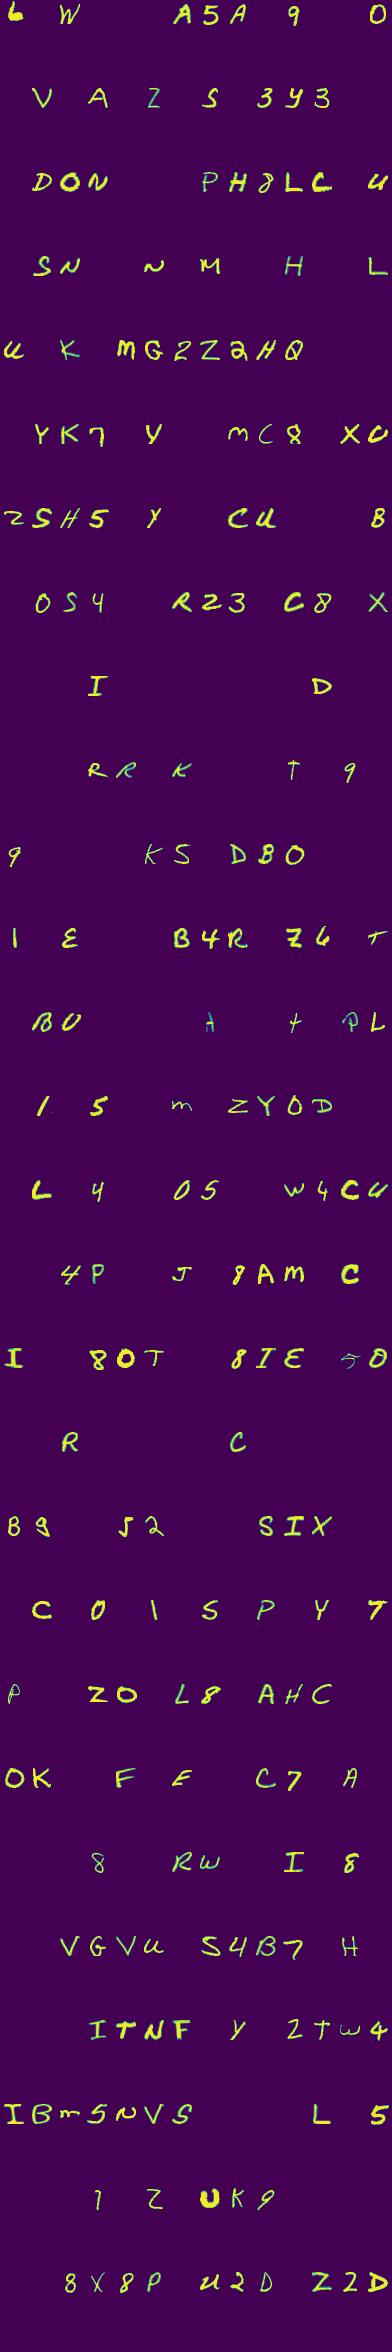 6 W A5A 9 0
V A Z S 3Y3
DON PH8LC U
SN N M H L
U K MG2Z2HQ
YK7 Y MC8 XU
2SH5 Y CU B
0S4 RZ3 C8 X
I D
RRK T 9
9 KS DBO
1 E B4R Z6 T
BU A X PL
1 5 M ZYOD
L 4 05 W4CU
4P J 8AM C
I 80T 8IE 50
R C
B8 52 SIX
C 0 1 S P Y 7
P ZO L8 AHC
OK F E C7 A
8 RW I 8
VGVU S4B7 H
ITNF Y 2TW4
IBM5NVS L 5
1 Z UK9
8X8P U2D Z2D